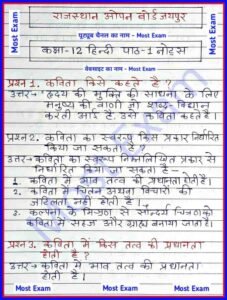 Most Exam
राजस्थान ओपन बोर्ड जयपुर
Most Exam
यूट्यूब चैनल का नाम - Most Exam
कक्षा-12 हिन्दी पाठ-1 नोट्स
वेबसाइट का नाम - Most Exam
प्रश्न 1. कविता किसे कहते हैं ?
उत्तर → हृदय की मुक्ति की साधना के लिए
मनुष्य की वाणी जो शब्द-विधान
करती आई है, उसे कविता कहते हैं।
प्रश्न 2. कविता का स्वरूप किस प्रकार निर्धारित
किया जा सकता है ?
उत्तर → कविता का स्वरूप निम्नलिखित प्रकार से
निर्धारित किया जा सकता है -
1. कविता में भाव तत्व की प्रधानता होती है।
2. कविता में चिंतन अथवा विचारों की
जटिलता नहीं होती है।
3. कल्पना के मिश्रण से सौन्दर्य चित्रण को
कविता में सहज और ग्राह्य बनाया जाता है।
प्रश्न 3. कविता में किस तत्व की प्रधानता
होती है ?
उत्तर → कविता में भाव तत्व की प्रधानता
होती है।
Most Exam
Most Exam